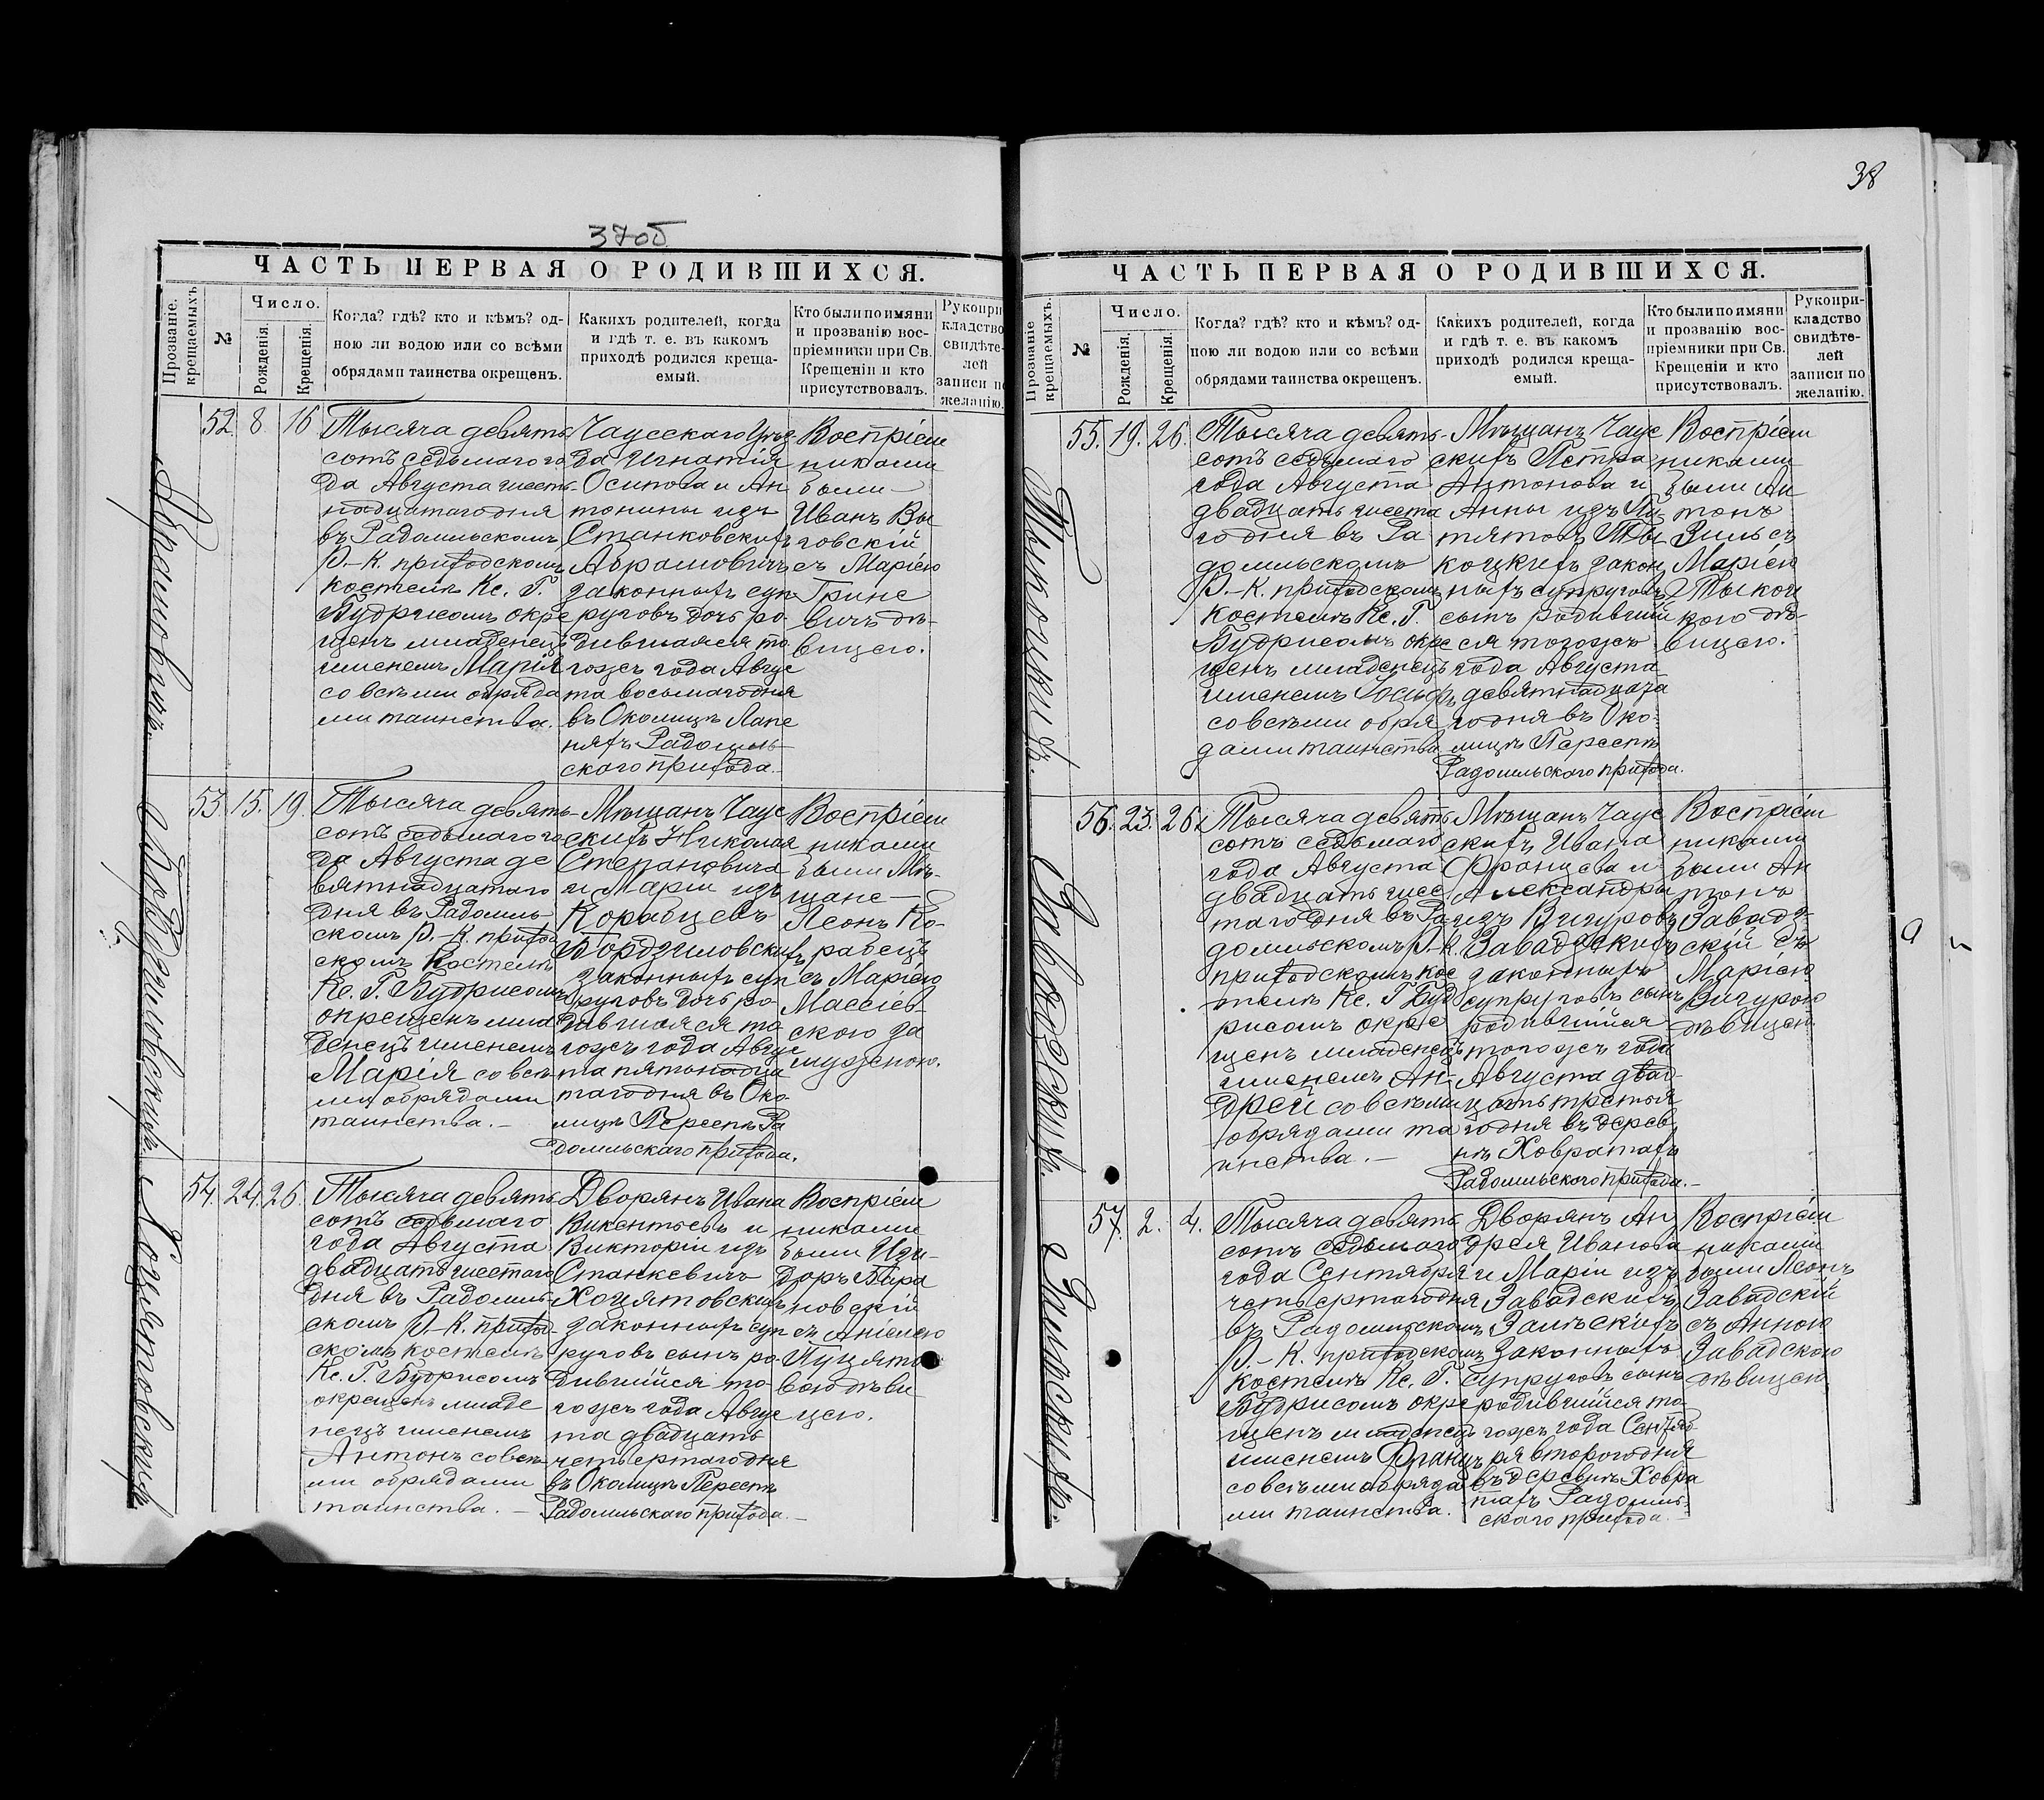 37об
ЧАСТЬ ПЕРВАЯ О РОДИВШИХСЯ.
Прозваніе крещаемыхъ
№
Число.
Рожденія.
Крещенія.
Когда? гдѣ? кто и кѣмъ? од-
ною ли водою или со всѣми
обрядами таинства окрещенъ.
Какихъ родителей, когда
и гдѣ т. е. въ какомъ
приходѣ родился креща-
емый.
Кто были по имяни
и прозванію вос-
пріемники при Св.
Крещеніи и кто
присутствовалъ.
Рукопри
кладство
свидѣте-
лей
записи по
желанію.
Абрамовичъ.
52. 8. 16
Тысяча девять
сотъ седьмаго го
да Августа шест-
надцатаго дня
въ Радомльскомъ
Р.-К. приходскомъ
костелѣ Кс. Г.
Будрисомъ окре
щенъ младенецъ
именемъ Марія
со всѣми обряда
ми таинства.
Чаусскаго Уѣз-
да Игнатія
Осипова и Ан
тонины изъ
Станковскихъ
Абрамовичъ
законныхъ суп
руговъ дочь ро-
дившаяся то
гожъ года Авгус
та восьмаго дня
въ Околицѣ Лапе
няхъ Радомль-
скаго прихода.
Воспріем
никами
были
Иванъ Вы
говскій
съ Маріею
Грине
вичъ дѣ-
вицею.
Бордзиловская
53. 15. 19.
Тысяча девять-
сотъ седьмаго го
да Августа де
вятнадцатаго
дня въ Радомль-
скомъ Р.-К. приход
скомъ Костелѣ
Кс. Г. Будрисомъ
окрещенъ мла
денецъ именемъ
Марія со всѣ-
ми обрядами
таинства.-
Мѣщанъ Чаус
скихъ Николая
Степановича
и Маріи изъ
Корабцевъ
Бордзиловскихъ
законныхъ суп
руговъ дочь ро-
дившаяся то
гожъ года Авгус
та пятонадца
таго дня въ Око
лицѣ Пересѣ Ра
домльскаго прихода.
Воспріем
никами
были Мѣ-
щане
Леонъ Ко-
рабецъ
съ Маріею
Массіев-
скою за
мужнею.
Хоцятовскій
54. 24. 26.
Тысяча девять
сотъ седьмаго
года Августа
двадцать шестаго
дня въ Радомль-
скомъ Р.-К. приход-
скомъ костелѣ
Кс. Г. Будрисомъ
окрещенъ младе
нецъ именемъ
Антонъ со всѣ-
ми обрядами
таинства.-
Дворянъ Ивана
Викентьевъ и
Викторіи изъ
Станкевичъ
Хоцятовскихъ
законныхъ суп
руговъ сынъ ро-
дившійся то
гожъ года Авгус
та двадцать
четвертаго дня
въ Околицѣ Пересѣ
Радомльскаго прихода.-
Воспріем
никами
были Изи-
доръ Бара
новскій
съ Аніелею
Пуцято
вою дѣви
цею.
38
ЧАСТЬ ПЕРВАЯ О РОДИВШИХСЯ.
Прозваніе крещаемыхъ.
№
Число.
Рожденія.
Крещенія.
Когда? гдѣ? кто и кѣмъ? од-
ною ли водою или со всѣми
обрядами таинства окрещенъ.
Какихъ родителей, когда
и гдѣ т. е. въ какомъ
приходѣ родился креща-
емый.
Кто были по имяни
и прозванію вос-
пріемники при Св.
Крещеніи и кто
присутствовалъ.
Рукопри-
кладство
свидѣте-
лей
записи по
желанію.
Тыкоцкій.
55. 19. 26.
Тысяча девять-
сотъ седьмаго
года Августа
двадцать шеста
го дня въ Ра
домльскомъ
Р.-К. приходскомъ
костелѣ Кс. Г.
Будрисомъ окре
щенъ младенецъ
именемъ Іосифъ
со всѣми обря
дами таинства
Мѣщанъ Чаус
скихъ Петра
Антонова и
Анны изъ Пу-
тятовъ Ты
коцкихъ закон
ныхъ супруговъ
сынъ родивший
ся тогожъ
года Августа
девятнадцата
го дня въ Око-
лицѣ Пересѣ
Радомльскаго прихода.
Воспріем
никами
были Ан
тонъ
Зиль съ
Маріею
Тыкоц
кою дѣ-
вицею.
Завадзскій.
56. 23. 26.
Тысяча девять
сотъ седьмаго
года Августа
двадцать шес
таго дня въ Ра
домльскомъ Р.-К.
приходскомъ кос
телѣ Кс. Г Буд
рисомъ окре
щенъ младенецъ
именемъ Ан-
дрей со всѣми
обрядами та
инства.-
Мѣщанъ Чаус
скихъ Ивана
Францева и
Александры
изъ Вигуровъ
Завадзскихъ
законныхъ
супруговъ сынъ
родившійся
тогожъ года
Августа двад-
цать третья
го дня въ дерев
нѣ Ховратахъ
Радомльскаго прихода.-
Воспріем
никами
были Ан
тонъ
Завадз-
скій съ
Маріею
Вигурою
дѣвицею
Залѣскій.
57. 2. 4.
Тысяча девять
сотъ седьмаго
года Сентября
четвертаго дня
въ Радомльскомъ
Р.-К. приходскомъ
костелѣ Кс. Г.
Будрисомъ окре
щенъ младенецъ
именемъ Францъ
со всѣми обряда
ми таинства.
Дворянъ Ан
дрея Иванова
и Маріи изъ
Завадскихъ
Залѣскихъ
законныхъ
супруговъ сынъ
родившійся то-
гожъ года Сентяб
ря втораго дня
въ деревнѣ Ховра
тахъ Радомль-
скаго прихода.-
Воспріем
никами
были Леонъ
Завадскій
съ Анною
Завадскою
дѣвицею